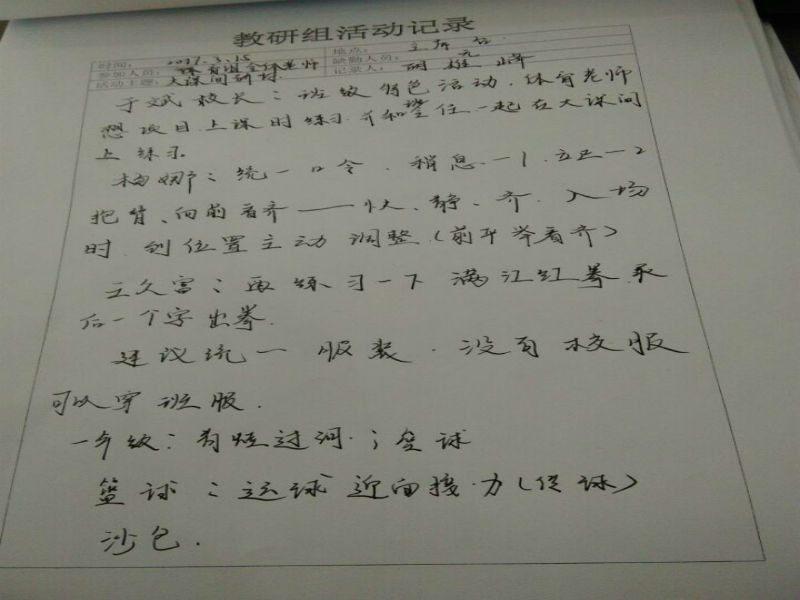 教研组活动记录
时间: 2017.3.15 地点: 主席台
参加人员: 体育组全体老师 缺勤人员: 无
活动主题: 大课间研讨 记录人: 胡维峰
于斌校长:班级特色活动.体育老师
想项目.上课时练习.并和班主任一起在大课间
上练习。
杨娜:统一口令.稍息.一1.立正一2
把臂、向前看齐——快、静、齐.入场
时.到位置主动调整(前平举看齐)
王久富:再练习一下满江红拳.最
后一个字出拳.
建议统一服装.没有校服
可以穿班服.
一年级:过河.;球
篮球:运球迎面接力(球)
沙包.